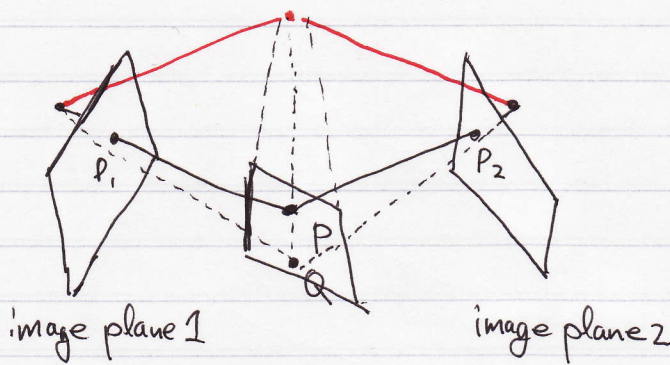 P₁
P₂
P
Q
image plane 1
image plane 2